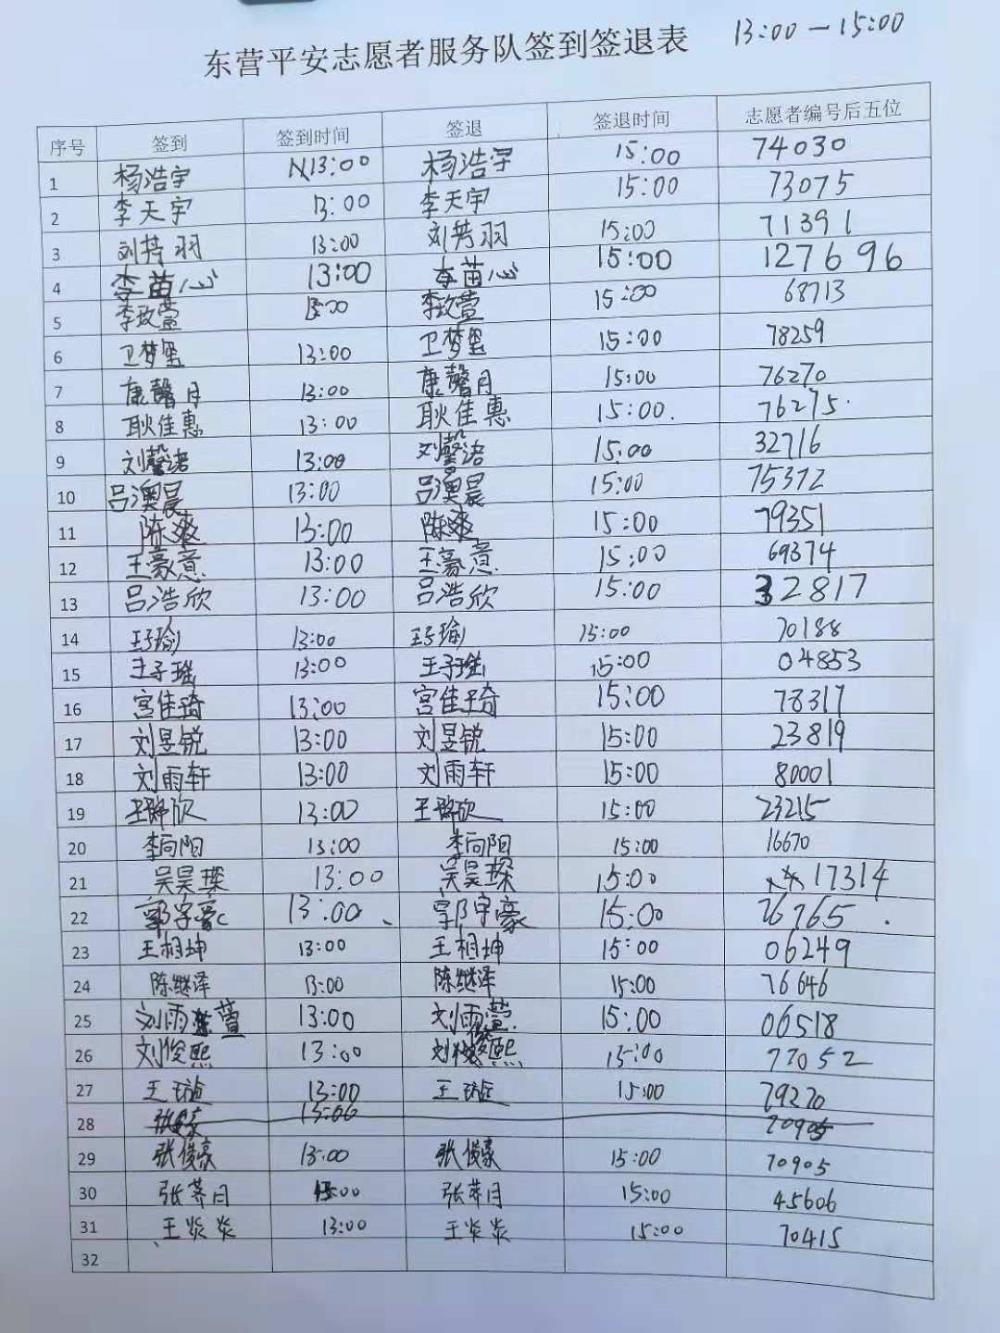 13:00-15:00
东营平安志愿者服务队签到签退表
序号 签到 签到时间 签退 签退时间 志愿者编号后五位
1 杨浩宇 13:00 杨浩宇 15:00 74030
2 李天宇 13:00 李天宇 15:00 73075
3 刘芳羽 13:00 刘芳羽 15:00 71391
4 李苗心 13:00 李苗心 15:00 127696
5 李玫萱 13:00 李玫萱 15:00 68713
6 卫梦 13:00 卫梦 15:00 78259
7 康馨月 13:00 康馨月 15:00 76270
8 耿佳惠 13:00 耿佳惠 15:00. 76275.
9 刘馨诺 13:00 刘馨诺 15:00 32716
10 吕澳晨 13:00 吕澳晨 15:00 75372
11 陈爽 13:00 陈爽 15:00 79351
12 王豪意 13:00 王豪意 15:00 69374
13 吕浩欣 13:00 吕浩欣 15:00 32817
14 王子瑜 13:00 王子瑜 15:00 70188
15 王子瑶 13:00 王子瑶 15:00 04853
16 宫佳琦 13:00 宫佳琦 15:00 78317
17 刘昱锐 13:00 刘昱锐 15:00 23819
18 刘雨轩 13:00 刘雨轩 15:00 80001
19 13:00 15:00 23215
20 李向阳 13:00 李向阳 15:00 16670
21 吴昊琛 13:00 吴昊琛 15:00 17314
22 郭宇豪 13:00 郭宇豪 15:00 26765.
23 王相坤 13:00 王相坤 15:00 06249
24 陈继泽 13:00 陈继泽 15:00 76646
25 刘雨萱 13:00 刘雨萱 15:00 06518
26 刘俊熙 13:00 刘俊熙 15:00 77052
27 王璇 13:00 王璇 15:00 79270
28 13:00 70905
29 张俊豪 13:00 张俊豪 15:00 70905
30 张荠月 13:00 张荠月 15:00 45606
31 王炎炎 13:00 王炎炎 15:00 70415
32